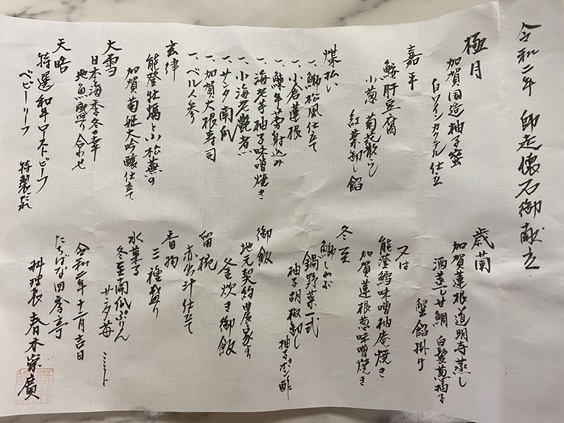 令和二年 師走懐石御献立
極月
加賀国造柚子蜜
白ワインカクテル仕立
嘉平
鮟肝豆腐
小葱 菊花散らし
紅葉卸し餡
煤払い
一、鰤松風仕立て
一、小倉蓮根
一、鰊牛蒡射込み
一、海老芋柚子味噌焼き
一、小海老艶煮
一、サンタ南瓜
一、加賀大根寿司
一、ベルト人参
玄律
能登牡蠣と小松蕪の
加賀菊姫大吟醸仕立て
大雪
日本海季冬の幸
地魚盛り合わせ
天晧
特選和牛ローストビーフ
ベビーリーフ 特製だれ
歳蘭
加賀蓮根道明寺蒸し
酒蒸し甘鯛 白髪葱柚子
蟹餡掛け
又は
能登鱈味噌柚庵焼き
加賀蓮根葱味噌焼き
冬至
鰤しゃぶ
鍋野菜一式
柚子胡椒卸し 柚子ポン酢
御飯
地元契約農家米
釜炊き御飯
留椀
赤出汁仕立て
香物
三種盛り
水菓子
冬至南瓜ぷりん
サンタ苺 ミント
令和二年十二月吉日
たちばな四季亭
料理長 春木宗廣